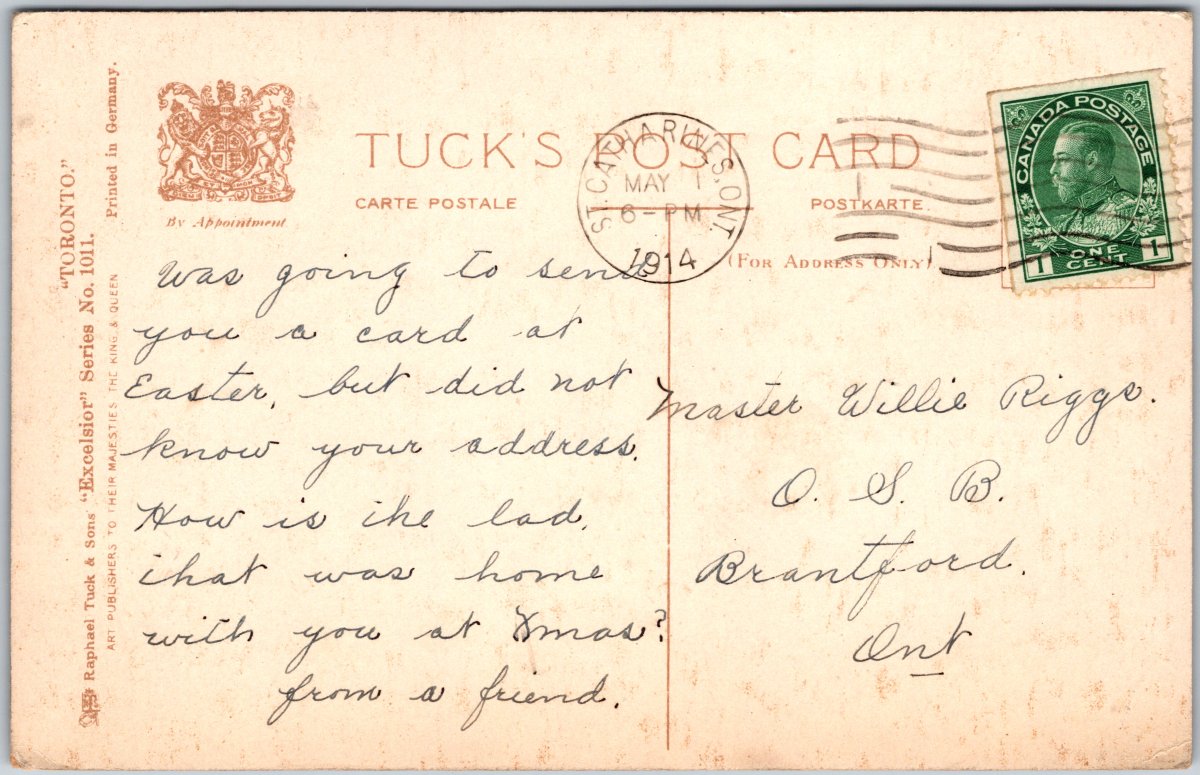 "TORONTO."
Raphael Tuck & Sons' "Excelsior" Series No. 1011. Printed in Germany.
ART PUBLISHERS TO THEIR MAJESTIES THE KING & QUEEN
By Appointment
TUCK'S POST CARD
CARTE POSTALE
POSTKARTE
(FOR ADDRESS ONLY)
ST. CATHARINES, ONT.
MAY 1
6-PM
1914
CANADA POSTAGE
1 ONE CENT 1
Was going to send
you a card at
Easter, but did not
know your address.
How is the lad,
that was home
with you at Xmas?
from a friend.
Master Willie Riggs.
O. S. B.
Brantford.
Ont